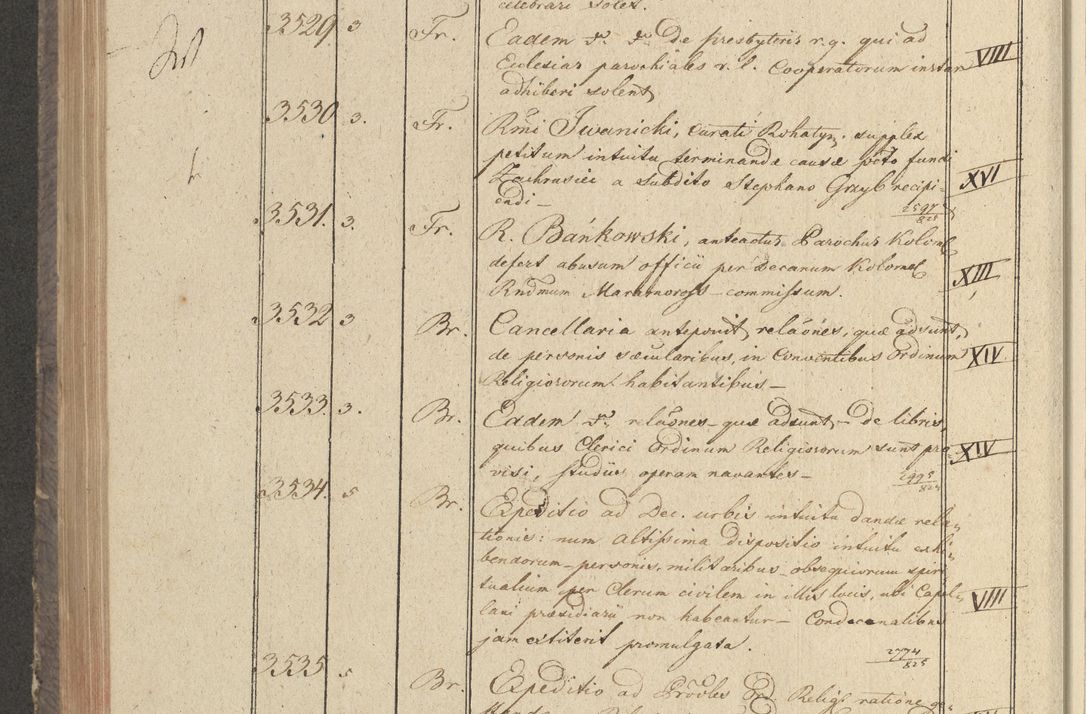 celebrari solet.
3529. 3 Fr. Eadem dt. dt. de presbyteris r. g. qui ad
Ecclesias parochiales r. l. Cooperatorum instar VIII
adhiberi solent
3530 3. Fr. Rmi Iwanicki, curati Rohatyn. supplex
petitum intuitu terminandæ causæ pcto fundi
Zachrusiei a subdito Stephano Grzyb recipi- XVI
endi— 2597/825
3531. 3. Fr. R. Bańkowski, anteactus Parochus Kolom.
defert abusum officii per Decanum Kolom. XIII
Rndmum Maramoross commissum.
3532 3 Br. Cancellaria anteponit relaões, quæ adsunt,
de personis sæcularibus, in Conventibus Ordinum XIV
Religiosorum habitantibus—
3533. 3. Br. Eadem dt. relaõnes quæ adsunt— de libris,
quibus Clerici Ordinum Religiosorum sunt pro XIV
visi, studiis operam navantes— 2995/825
3534. 5 Br. Expeditio ad Dec. urbis intuitu dandæ rela-
tionis: num altissima dispositio intuitu exhi-
bendorum personis militaribus obsequiorum spiri
tualium per Clerum civilem in illis locis, ubi Capel-
lani præsidiarii non habeantur— Condecanalibus VIII
jam extiterit promulgata. 2774/825
3535 5 Br. Expeditio ad Prõvles Ord. Relig. ratione ge-